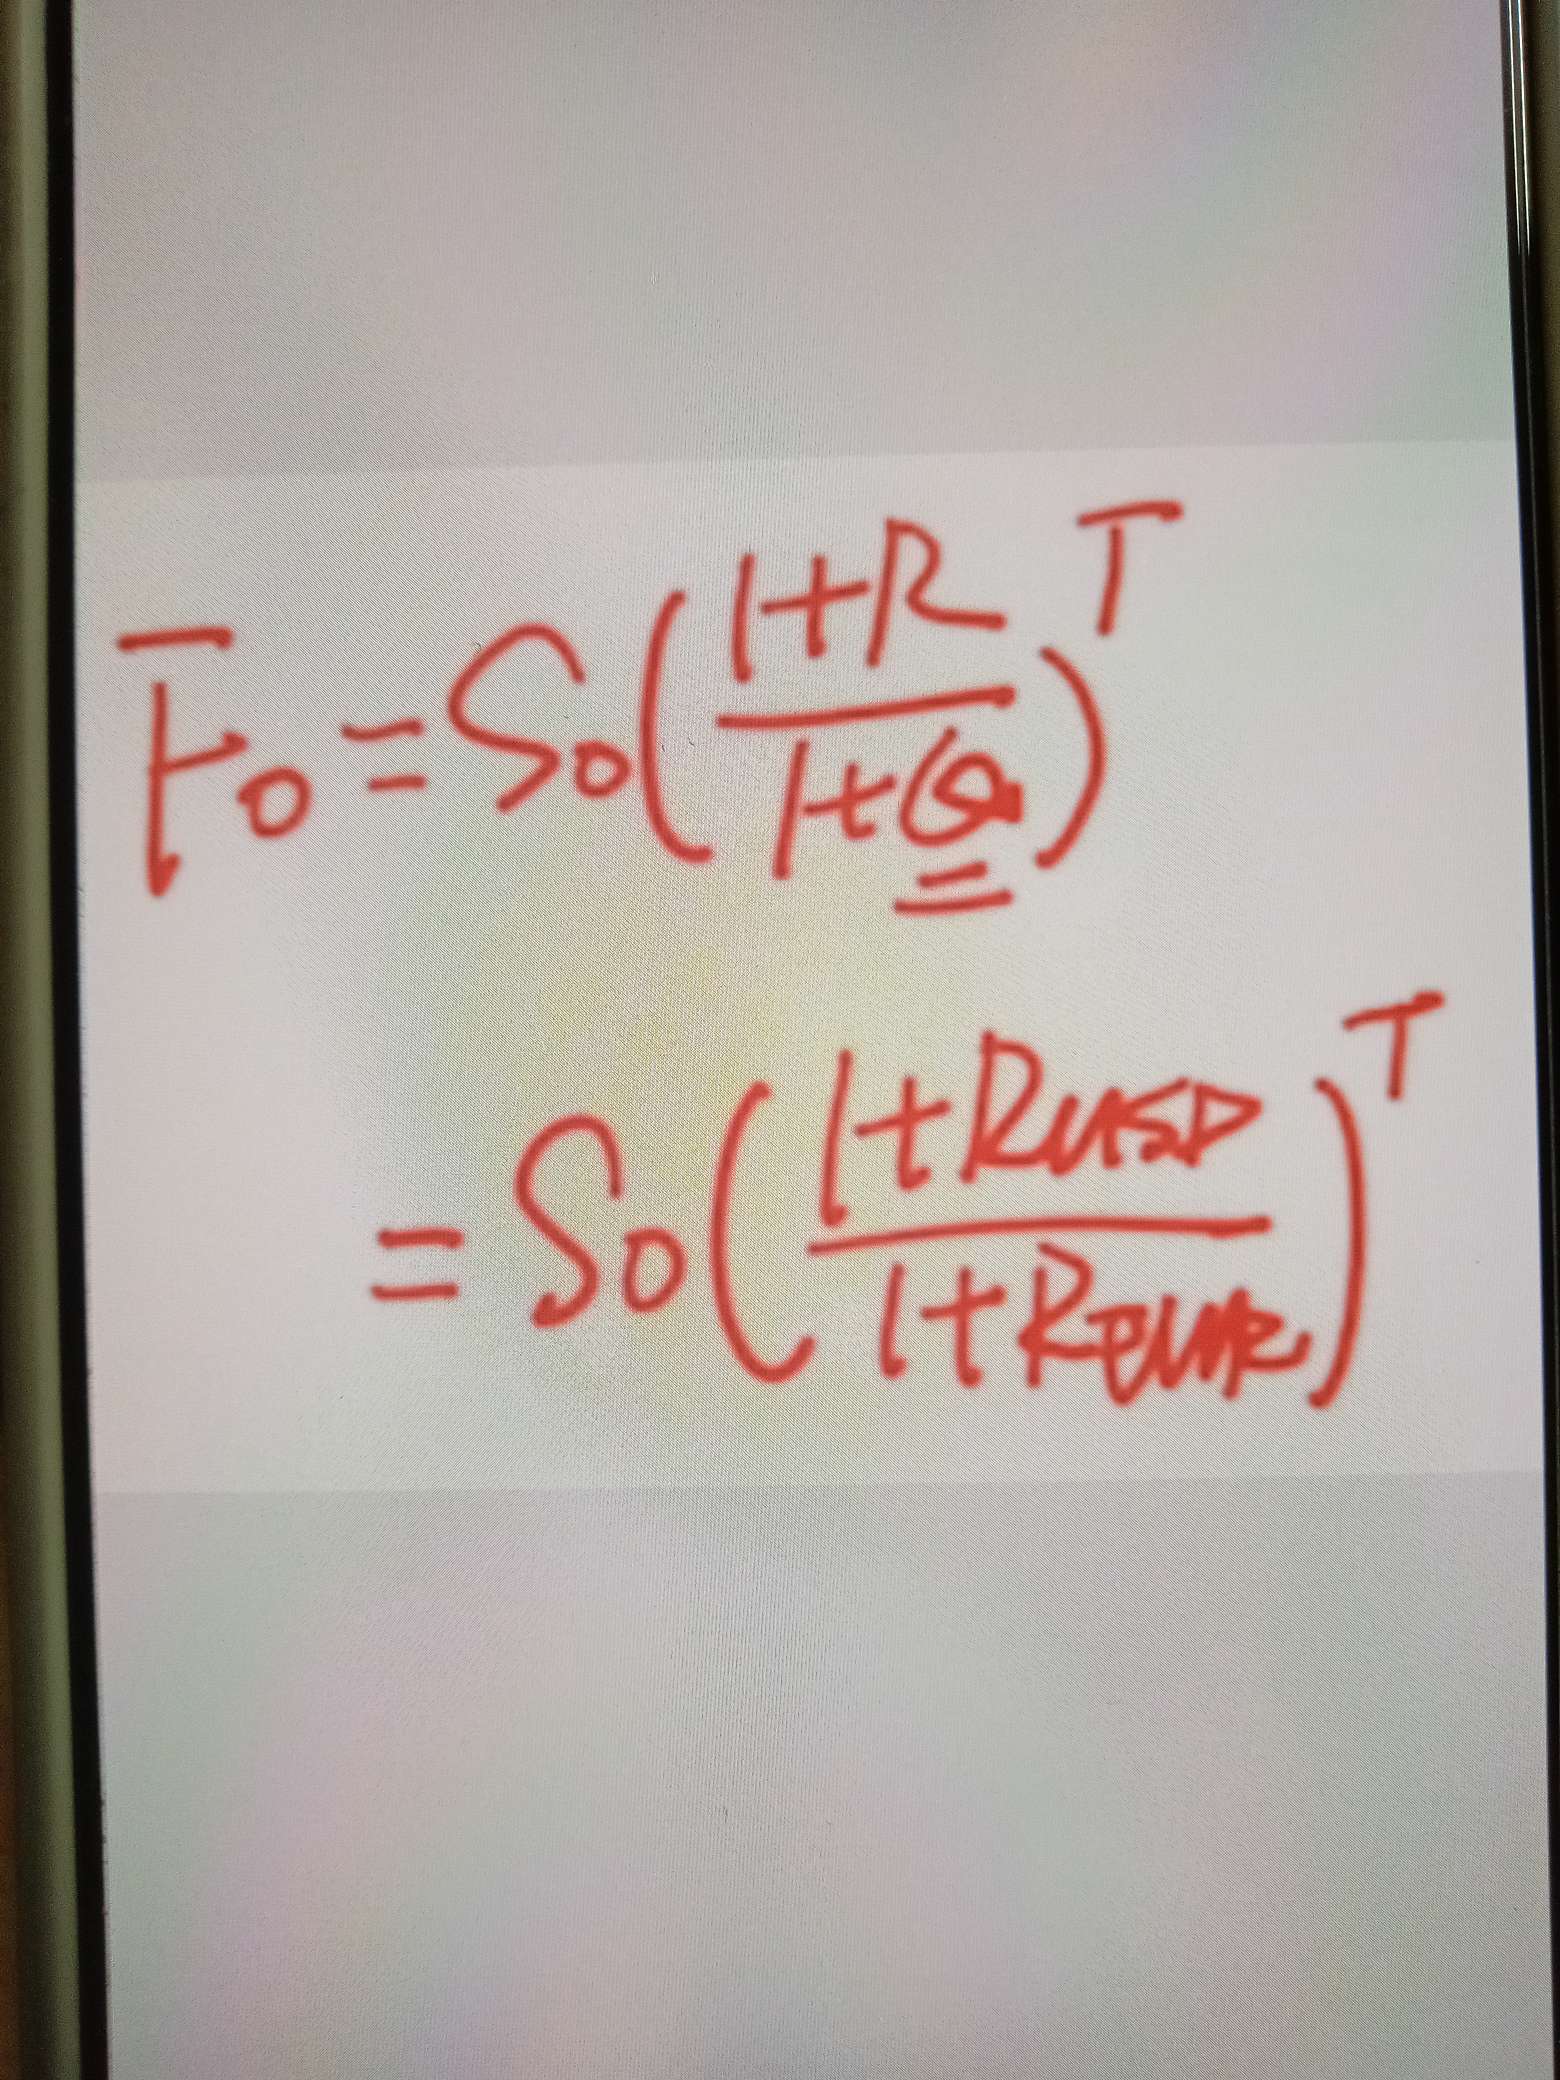 F₀ = S₀((1+R)/(1+Q))^T
= S₀((1+R_USD)/(1+R_EUR))^T